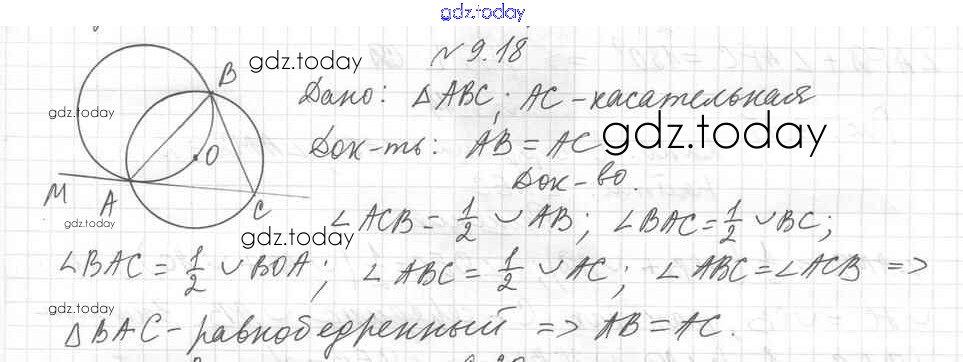 gdz.today
№ 9.18
gdz.today
B
Дано: △ABC; AC - касательная
gdz.today
Док-ть: AB = AC
gdz.today
O
Док-во.
M
A
C
gdz.today
∠ACB = 1/2 ∪ AB; ∠BAC = 1/2 ∪ BC;
gdz.today
∠BAC = 1/2 ∪ BOA; ∠ABC = 1/2 ∪ AC; ∠ABC = ∠ACB =>
gdz.today
△BAC - равнобедренный => AB = AC.